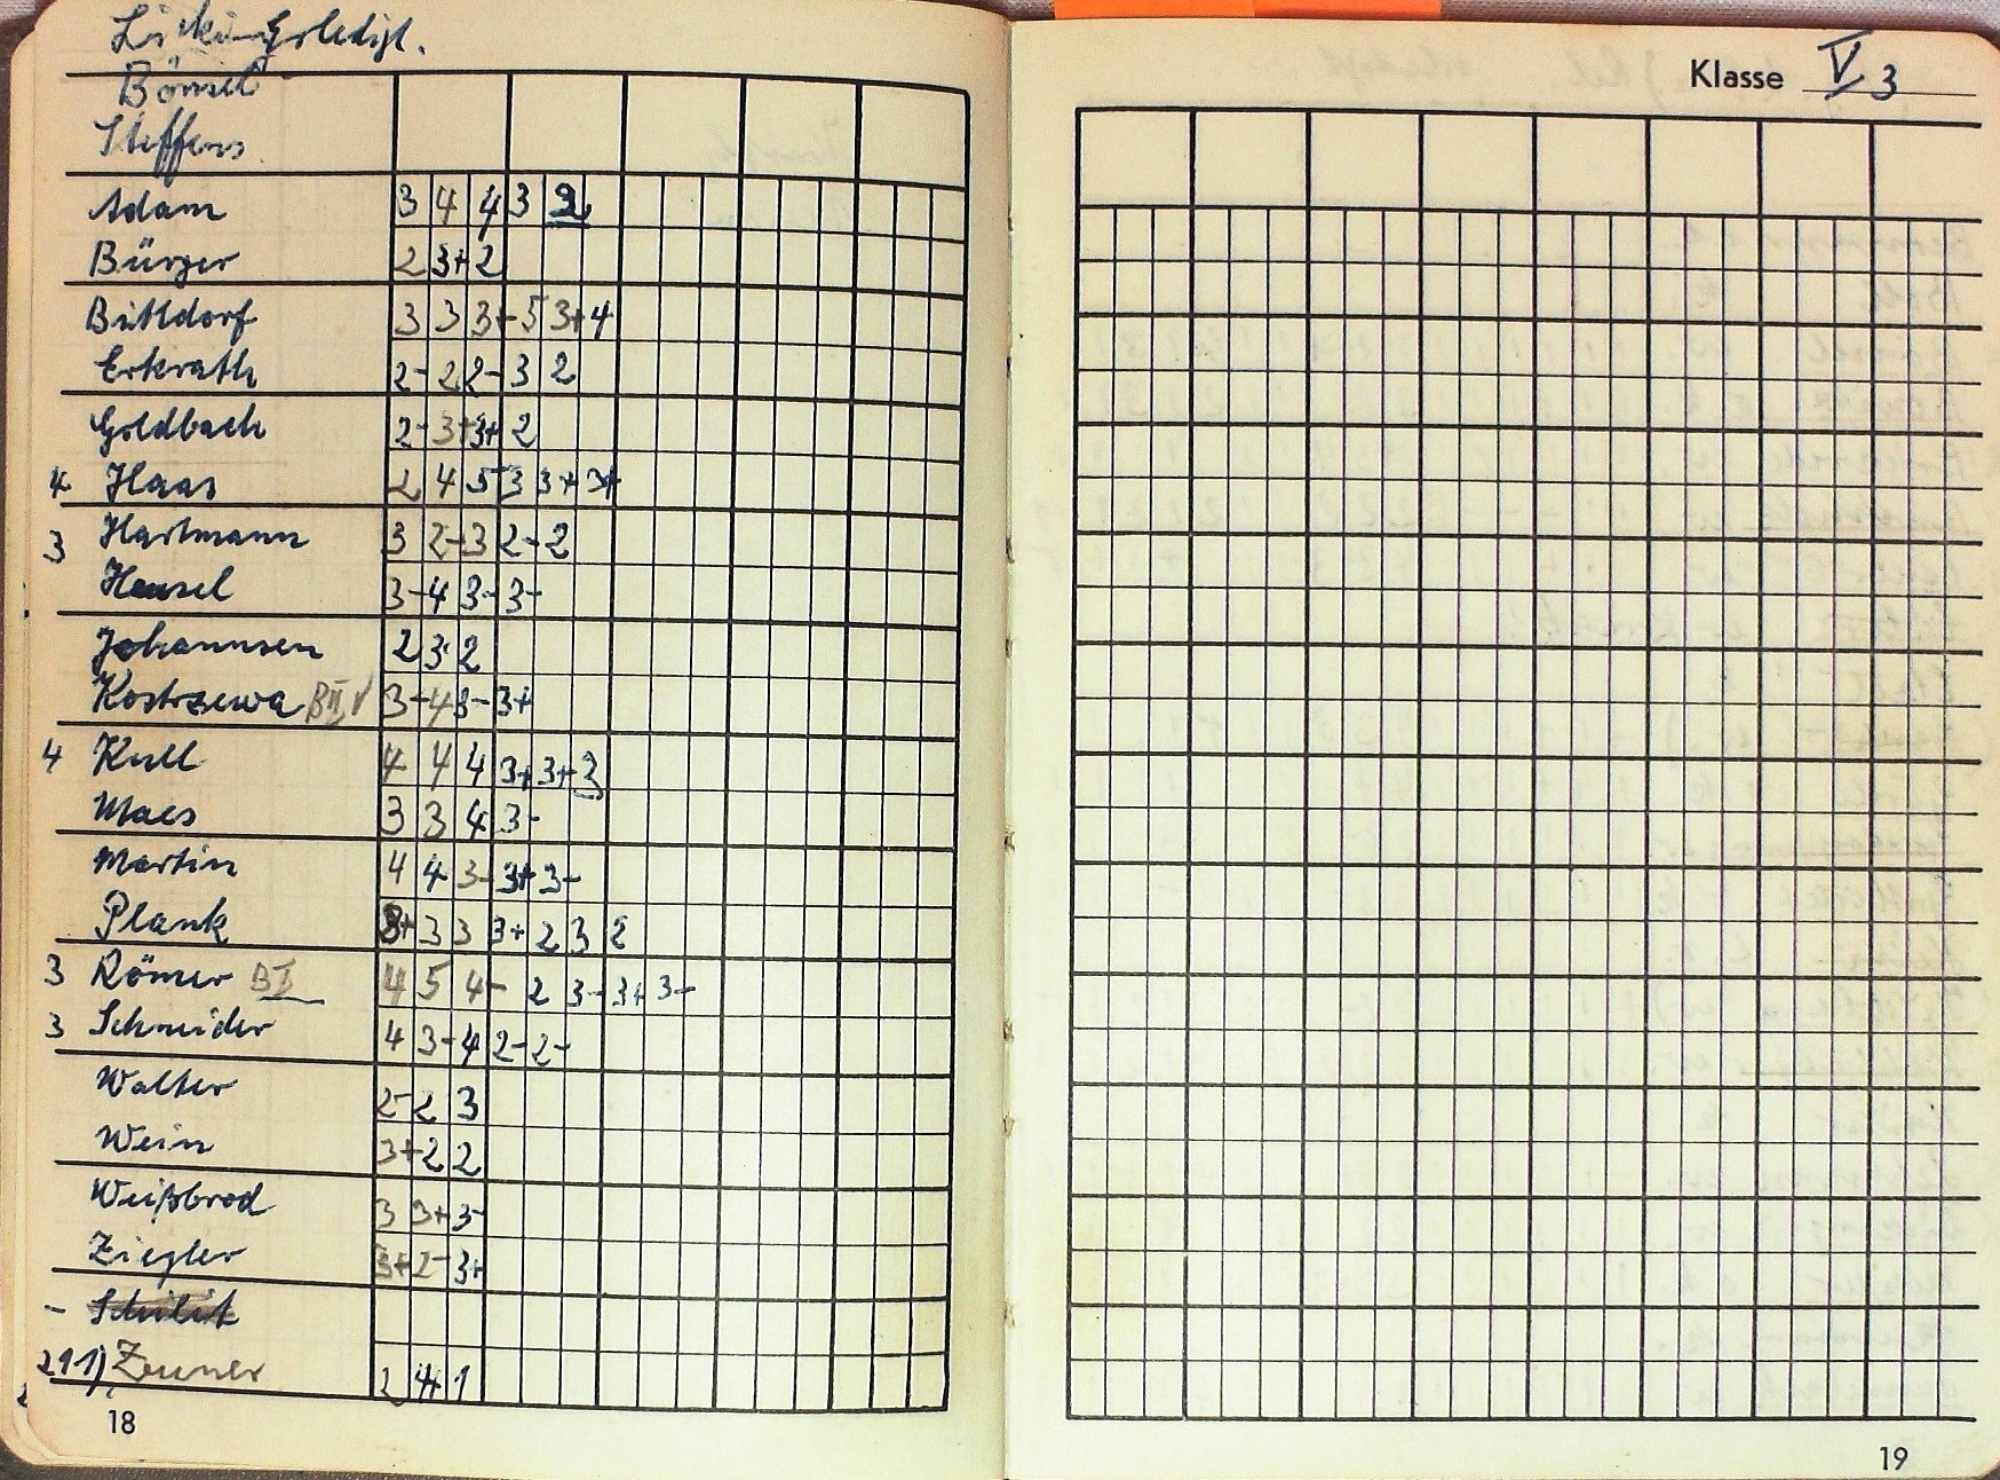 erledigt.
Bönsel
Steffens
Klasse V, 3
Adam 3 4 4 3 2
Bürger 2 3+ 2
Büttdorf 3 3 3+ 5 3+ 4
Erkrath 2- 2 2- 3 2
Goldbach 2- 3+ 3+ 2
4 Haas 2 4 5 3 3+ 3+
3 Hartmann 3 2- 3 2- 2
Hensel 3- 4 3- 3-
Johannsen 2 3 2
Kostrzewa BII 3- 4 3- 3+
4 Kull 4 4 4 3+ 3+ 3
Maes 3 3 4 3-
Martin 4 4 3- 3+ 3-
Plank 3+ 3 3 3+ 2 3 2
3 Römer BI 4 5 4- 2 3- 3+ 3-
3 Schneider 4 3- 4 2- 2-
Walter 2- 2 3
Wein 3+ 2 2
Weißbrod 3 3+ 3-
Ziegler 3+ 2- 3+
-
211) Zeuner 2 4+ 1
18
19